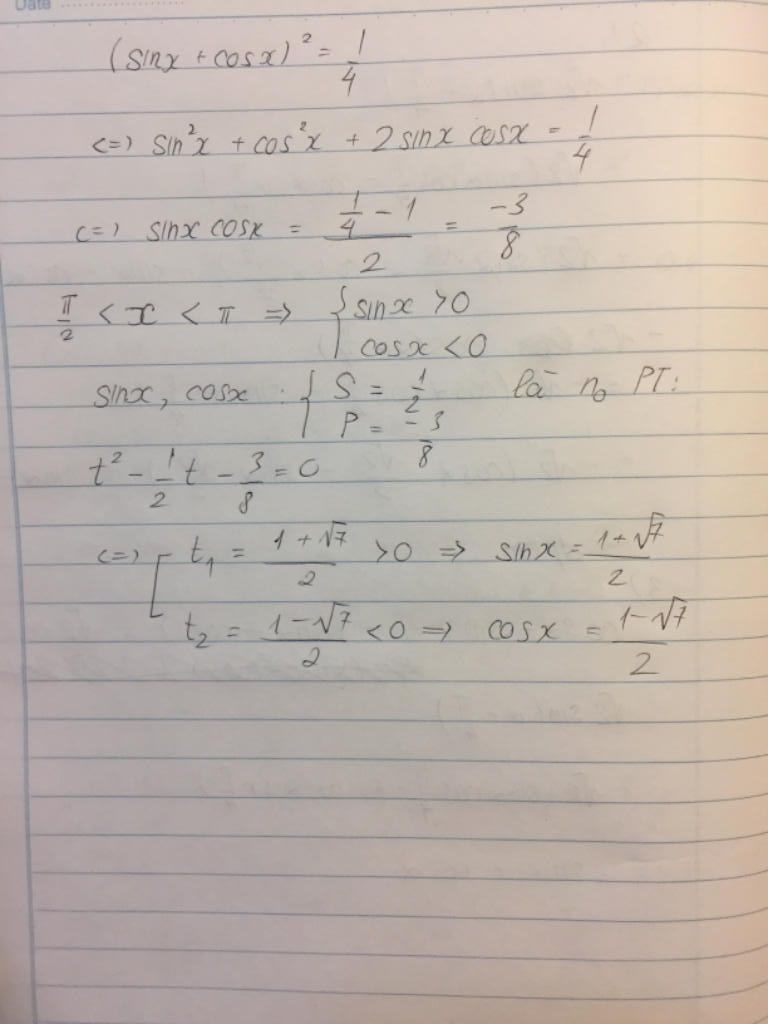 Date
(sinx + cosx)² = 1/4
<=> sin²x + cos²x + 2sinx cosx = 1/4
<=> sinx cosx = (1/4 - 1)/2 = -3/8
π/2 < x < π => { sinx > 0
cosx < 0
sinx, cosx : { S = 1/2 là no PT:
P = -3/8
t² - 1/2 t - 3/8 = 0
<=> [ t₁ = (1 + √7)/2 > 0 => sinx = (1 + √7)/2
t₂ = (1 - √7)/2 < 0 => cosx = (1 - √7)/2